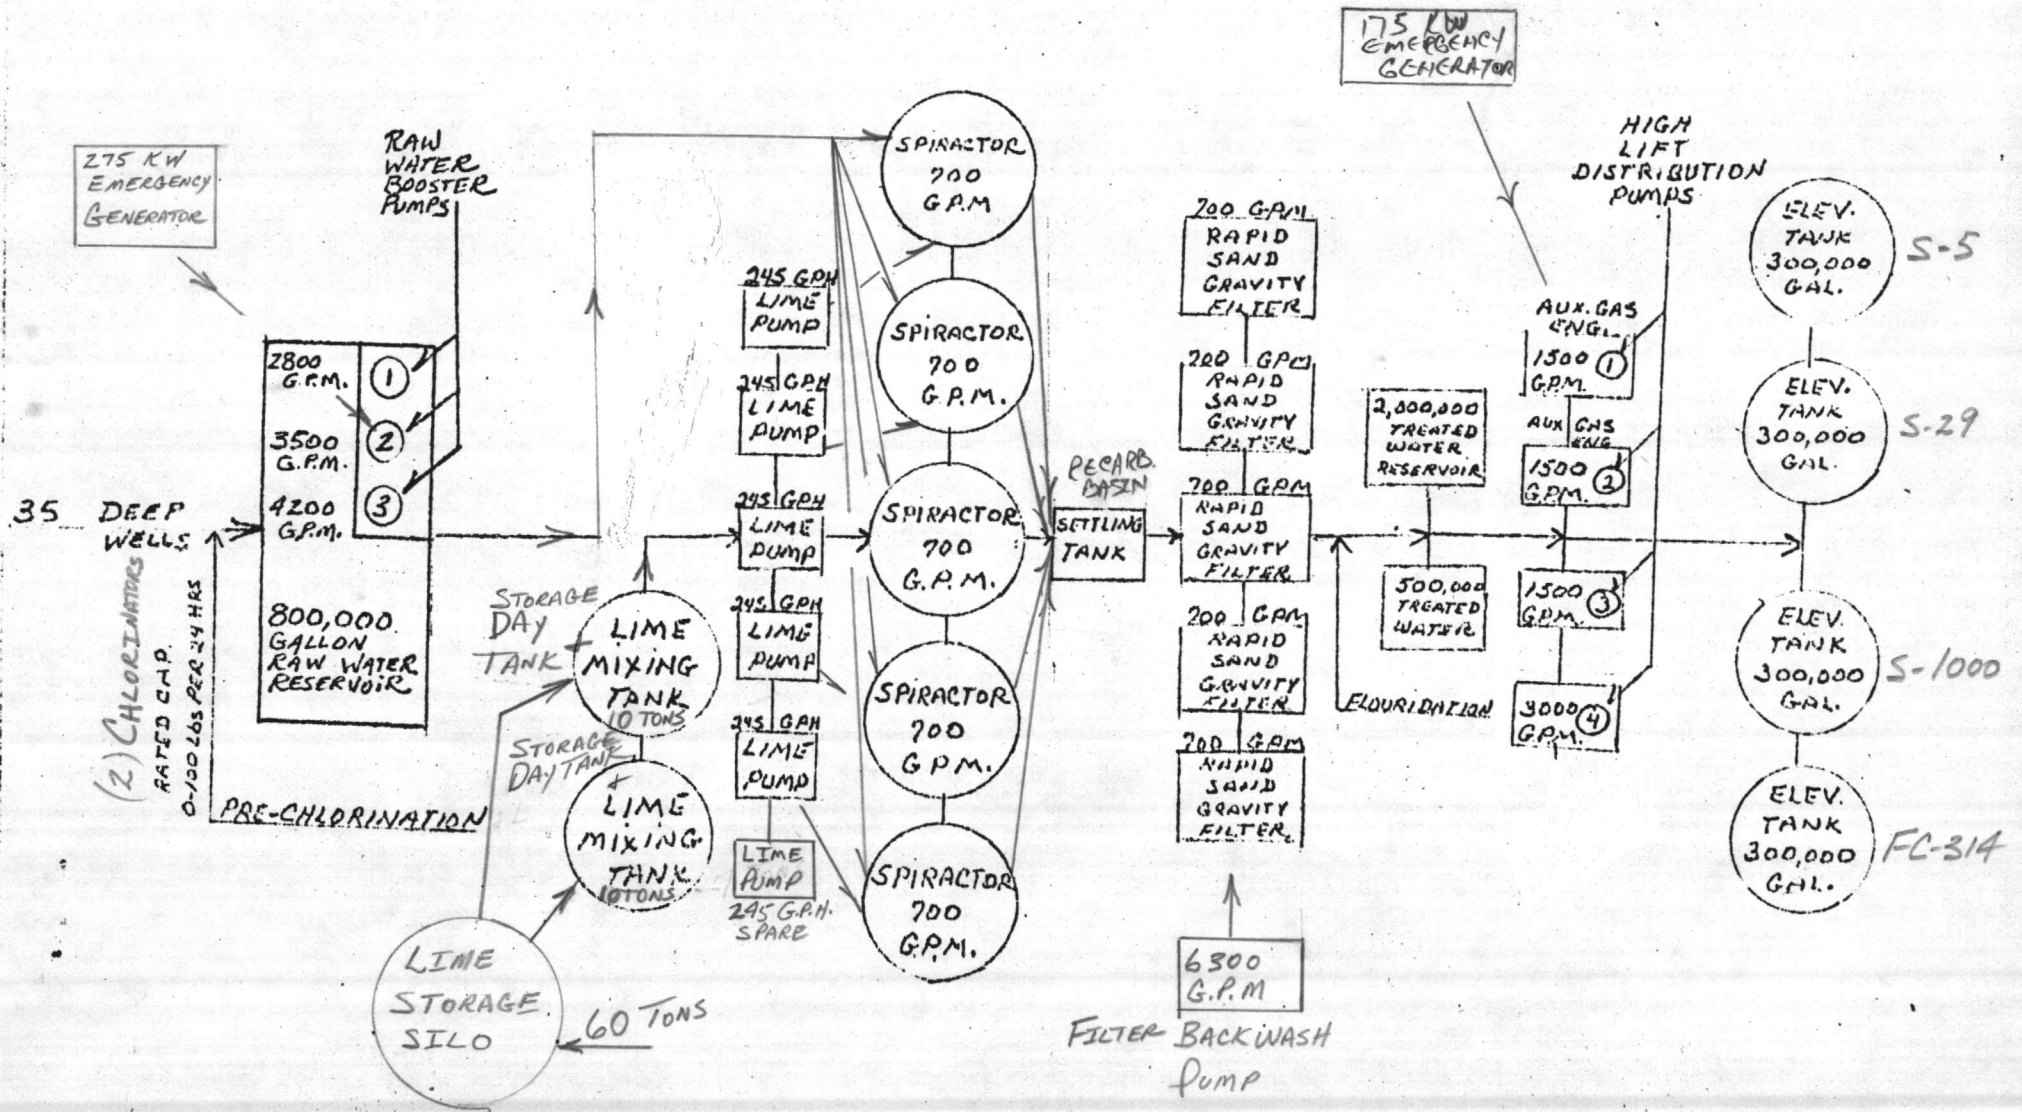 275 KW
EMERGENCY
GENERATOR
RAW
WATER
BOOSTER
PUMPS
2800
G.P.M.
1
3500
G.P.M.
2
4200
G.P.M.
3
800,000
GALLON
RAW WATER
RESERVOIR
35 DEEP
WELLS
(2) CHLORINATORS
RATED CAP.
0-100 LBS PER 24 HRS
PRE-CHLORINATION
STORAGE
DAY
TANK +
LIME
MIXING
TANK
10 TONS
STORAGE
DAY TANK
+
LIME
MIXING
TANK
10 TONS
LIME
STORAGE
SILO
60 TONS
245 GPH
LIME
PUMP
245 GPH
LIME
PUMP
245 GPH
LIME
PUMP
245 GPH
LIME
PUMP
245 GPH
LIME
PUMP
LIME
PUMP
245 G.P.H.
SPARE
SPIRACTOR
700
G.P.M
SPIRACTOR
700
G.P.M.
SPIRACTOR
700
G.P.M.
SPIRACTOR
700
G.P.M.
SPIRACTOR
700
G.P.M.
RECARB.
BASIN
SETTLING
TANK
700 GPM
RAPID
SAND
GRAVITY
FILTER
700 GPM
RAPID
SAND
GRAVITY
FILTER
700 GPM
RAPID
SAND
GRAVITY
FILTER
700 GPM
RAPID
SAND
GRAVITY
FILTER
700 GPM
RAPID
SAND
GRAVITY
FILTER
6300
G.P.M
FILTER BACKWASH
PUMP
FLOURIDATION
2,000,000
TREATED
WATER
RESERVOIR
500,000
TREATED
WATER
175 KW
EMERGENCY
GENERATOR
HIGH
LIFT
DISTRIBUTION
PUMPS
AUX. GAS
ENG.
1500 1
GPM.
AUX GAS
ENG
1500 2
G.P.M.
1500 3
GPM.
3000 4
GPM.
ELEV.
TANK
300,000
GAL.
S-5
ELEV.
TANK
300,000
GAL.
S-29
ELEV.
TANK
300,000
GAL.
S-1000
ELEV.
TANK
300,000
GAL.
FC-314